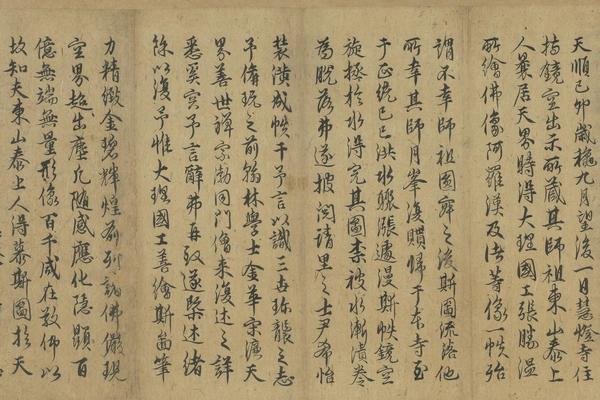 天順己卯歲穐九月望後一日慧燈寺住
持鏡空出示所藏其師祖東山泰上
人曩居天界時得大理國工張勝温
所繪佛像阿羅漢及諸等像一帙殆
謂不幸師祖圓寂之後斯圖流落他
所幸其師月峯復贖歸于本寺至
于正統己巳洪水驟漲遽漫斯帙鏡空
旋拯於水得完其圖柰被水漸漬卷
為脱落弗遂披閱請里之士尹希怡
裝潢成帙干予言以識三丕珎襲之志
予偹玩之前翰林學士金華宋濂天
界善世禪宗泐同門僧來復述之詳
悉奚冥予言辭弗再致遂槩述緒
餘以復予惟大理國工善繪斯啚筆
力精緻金碧輝煌前列諸佛儼現
空界超出塵凡隨感應化隱顯百
億無端無量形像百千咸在敬佛以
故知夫東山泰上人得慕斯圖於天